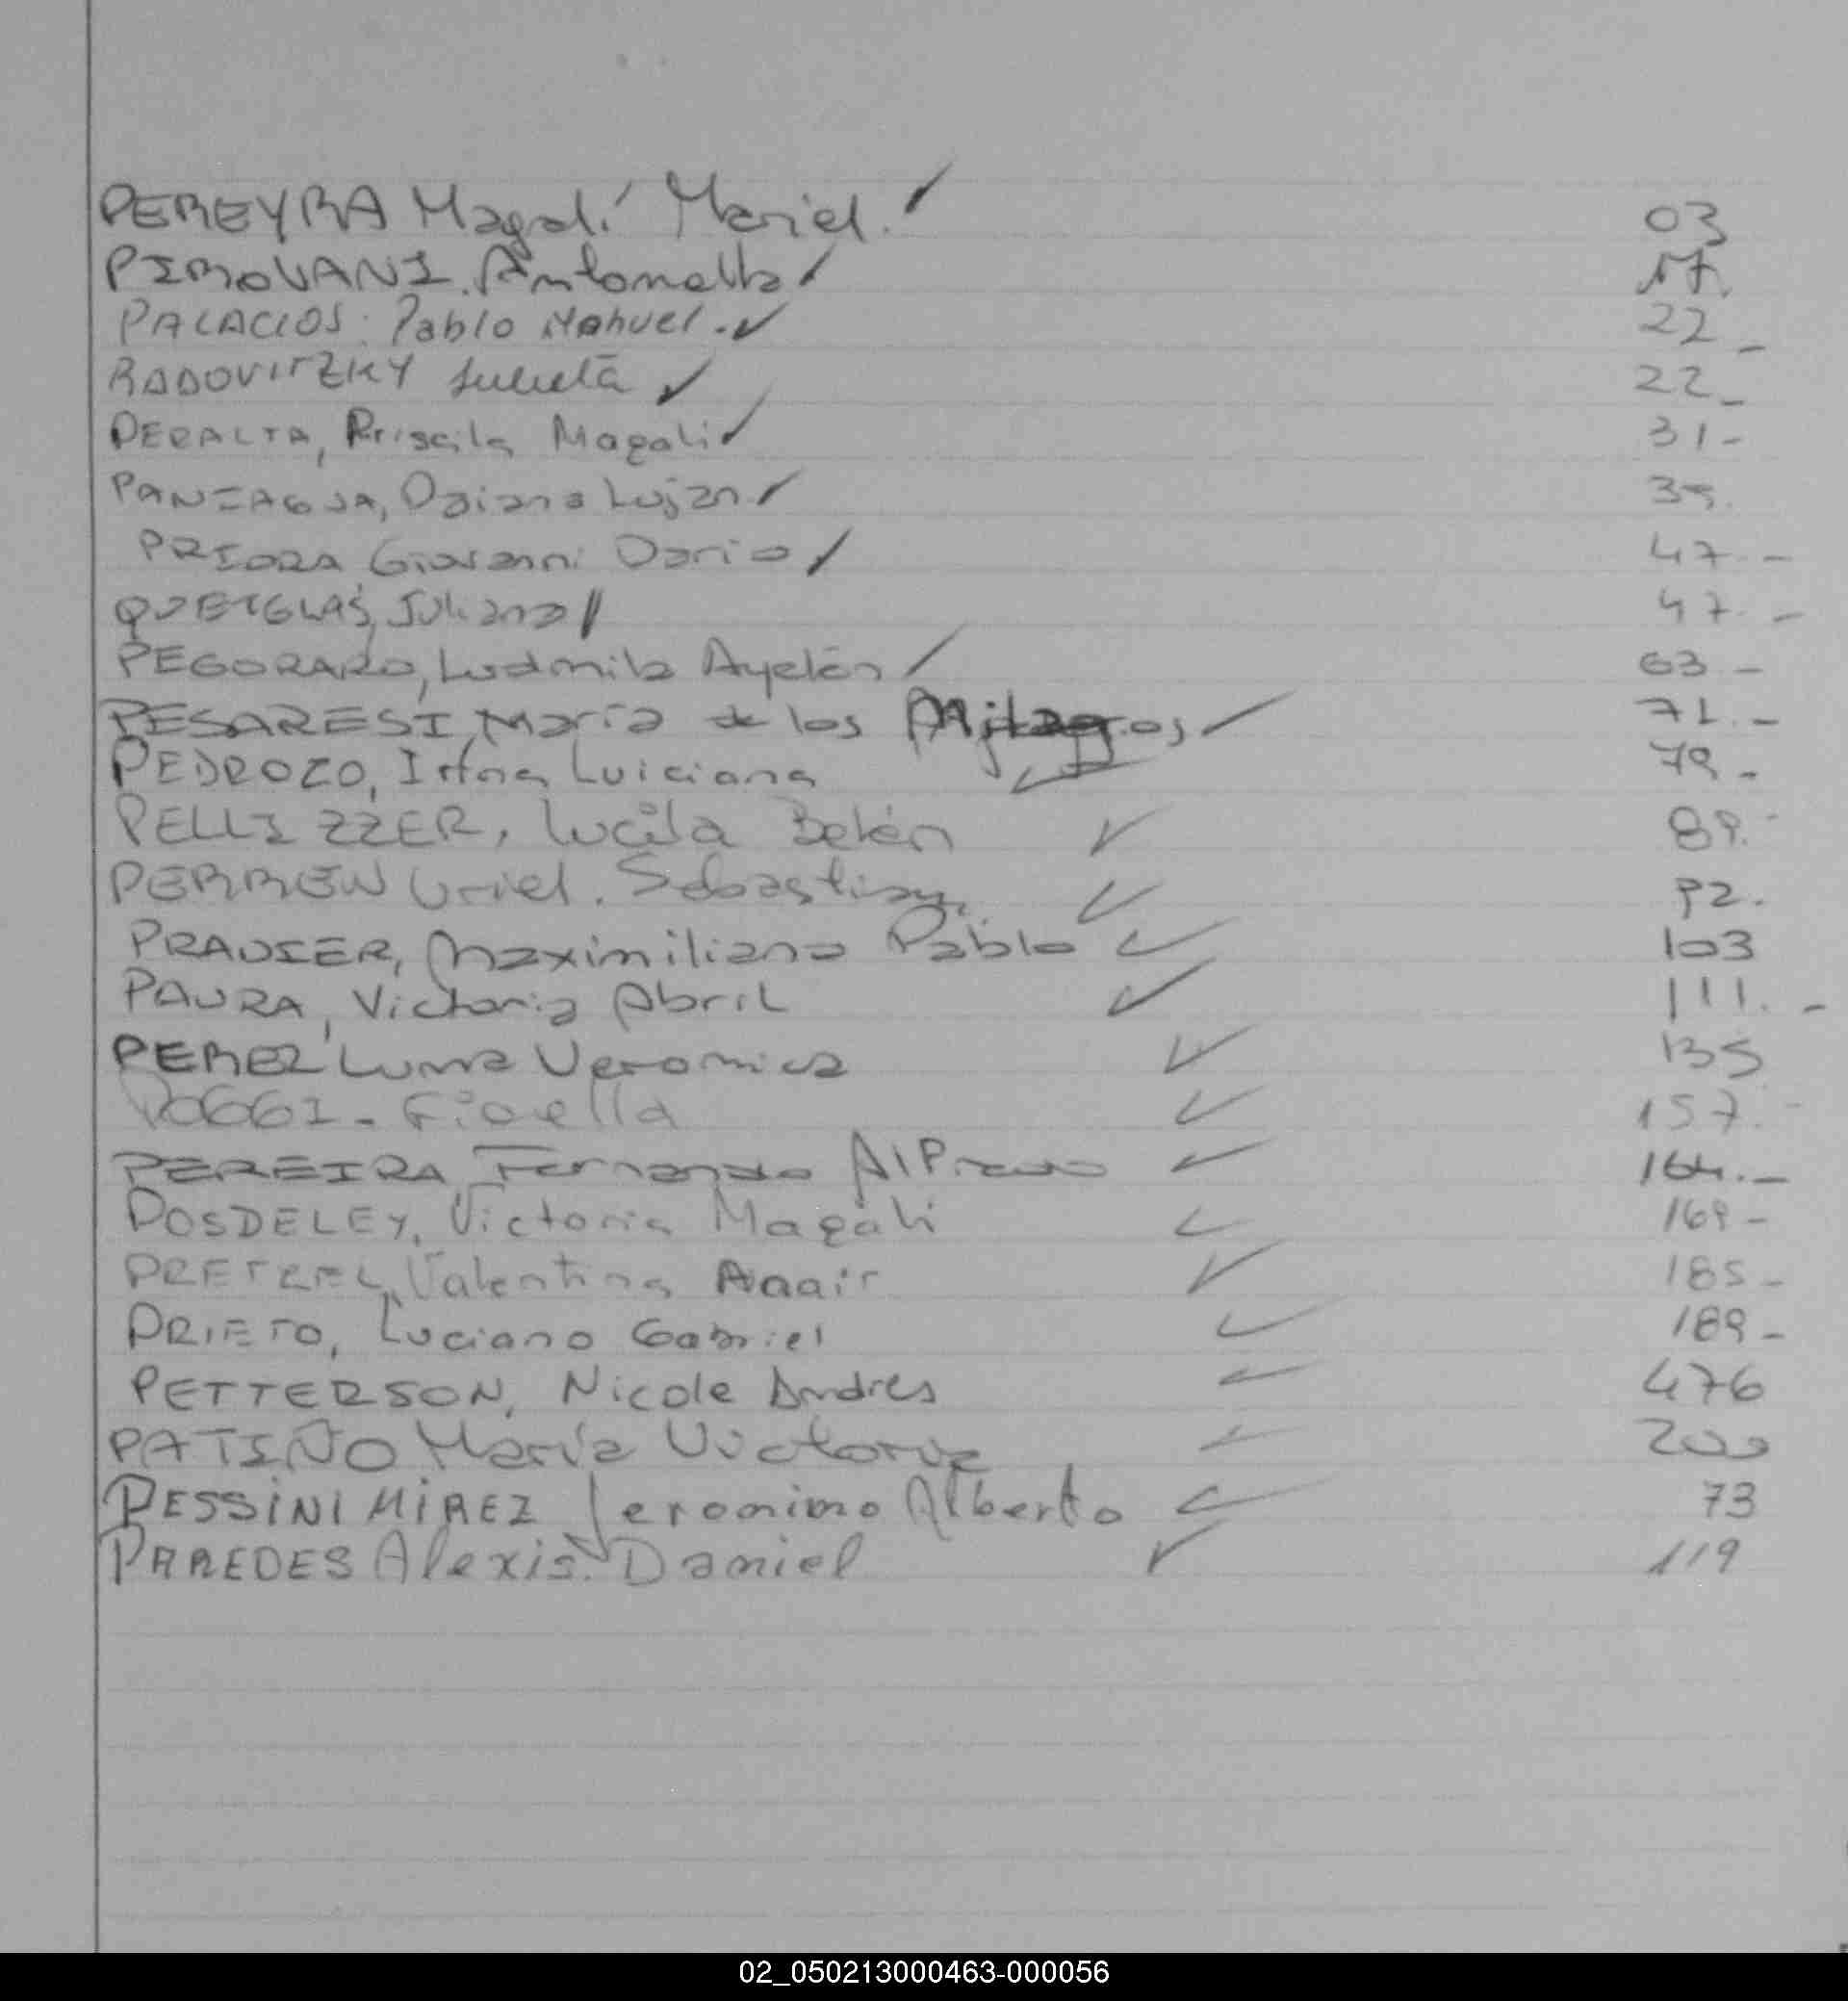 PEREYRA Magalí Mariel. ✓ 03
PIROVANI. Antonella ✓ 17.
PALACIOS. Pablo Nahuel. ✓ 22_
RADOVITZKY Julieta ✓ 22_
PERALTA, Priscila Magali ✓ 31-
PANIAGUA, Daiana Lujan ✓ 35.
PRIORA Giovanni Dario ✓ 47.-
QUETGLAS, Juliana 47.-
PEGORARO, Ludmila Ayelén ✓ 63-
PESARESI, María de los Milagros ✓ 71.-
PEDROZO, Luiciana ✓ 79-
PELLIZZER, Lucila Belén ✓ 89.-
PERREN Uriel. Sebastian. ✓ 92.
PRAUSER, Maximiliano Pablo ✓ 103
PAURA, Victoria Abril ✓ 111.-
PEREZ Luna Veronica ✓ 135
POGGI - Fiorella ✓ 157.-
PEREIRA, Fernando Alfredo ✓ 164.-
POSDELEY, Victoria Magali ✓ 169-
PRETZEL, Valentina ✓ 185-
PRIETO, Luciano Gabriel ✓ 189-
PETTERSON, Nicole Andres ✓ 476
PATIÑO María Victoria ✓ 200
PESSINI MIREZ Jeronimo Alberto ✓ 73
PAREDES Alexis. Daniel ✓ 119
02_050213000463-000056